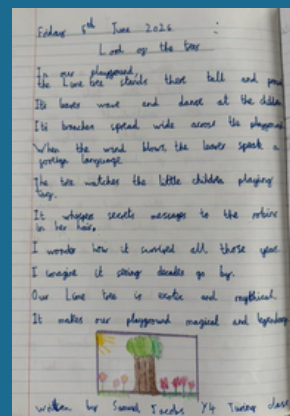 Friday 5th June 2026
Look at the tree
In our playground,
the Lime tree stands there tall and proud
Its leaves wave and dance at the children
Its branches spread wide across the playground
When the wind blows, the leaves speak a
foreign language
The tree watches the little children playing
It whispers secrets messages to the robins
in her hair.
I wonder how it survived all those years.
I imagine it seeing decades go by.
Our Lime tree is exotic and mythical.
It makes our playground magical and legendary
written by Samuel Jacobs Y4 Turing class